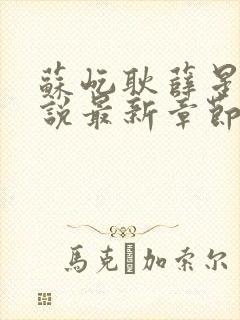 蘇屹耿薛星
說最新章節
馬克 加索尔